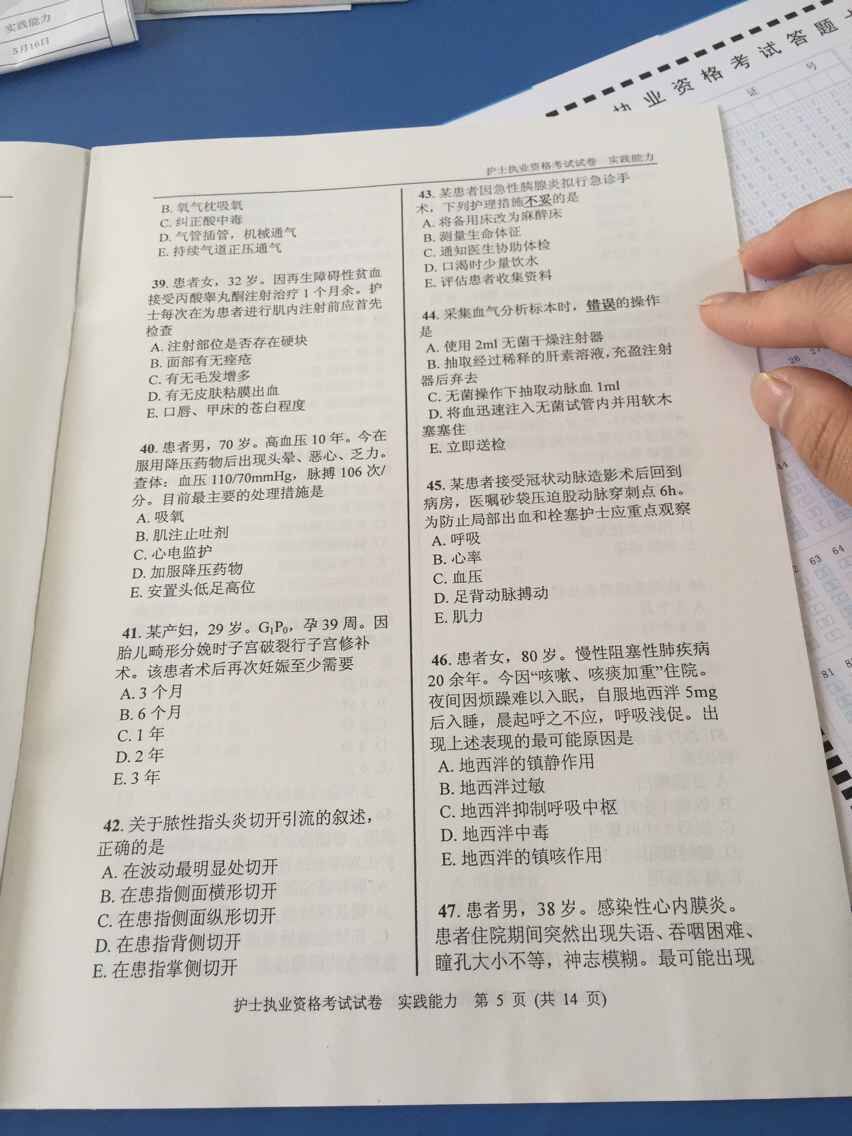 实践能力
5月16日
执业资格考试答题卡
证
号
护士执业资格考试试卷 实践能力
B. 氧气枕吸氧
C. 纠正酸中毒
D. 气管插管，机械通气
E. 持续气道正压通气
39. 患者女，32 岁。因再生障碍性贫血
接受丙酸睾丸酮注射治疗 1 个月余。护
士每次在为患者进行肌内注射前应首先
检查
A. 注射部位是否存在硬块
B. 面部有无痤疮
C. 有无毛发增多
D. 有无皮肤粘膜出血
E. 口唇、甲床的苍白程度
40. 患者男，70 岁。高血压 10 年。今在
服用降压药物后出现头晕、恶心、乏力。
查体：血压 110/70mmHg，脉搏 106 次/
分。目前最主要的处理措施是
A. 吸氧
B. 肌注止吐剂
C. 心电监护
D. 加服降压药物
E. 安置头低足高位
41. 某产妇，29 岁。G₁P₀，孕 39 周。因
胎儿畸形分娩时子宫破裂行子宫修补
术。该患者术后再次妊娠至少需要
A. 3 个月
B. 6 个月
C. 1 年
D. 2 年
E. 3 年
42. 关于脓性指头炎切开引流的叙述，
正确的是
A. 在波动最明显处切开
B. 在患指侧面横形切开
C. 在患指侧面纵形切开
D. 在患指背侧切开
E. 在患指掌侧切开
43. 某患者因急性胰腺炎拟行急诊手
术，下列护理措施不妥的是
A. 将备用床改为麻醉床
B. 测量生命体征
C. 通知医生协助体检
D. 口渴时少量饮水
E. 评估患者收集资料
44. 采集血气分析标本时，错误的操作
是
A. 使用 2ml 无菌干燥注射器
B. 抽取经过稀释的肝素溶液，充盈注射
器后弃去
C. 无菌操作下抽取动脉血 1ml
D. 将血迅速注入无菌试管内并用软木
塞塞住
E. 立即送检
45. 某患者接受冠状动脉造影术后回到
病房，医嘱砂袋压迫股动脉穿刺点 6h。
为防止局部出血和栓塞护士应重点观察
A. 呼吸
B. 心率
C. 血压
D. 足背动脉搏动
E. 肌力
46. 患者女，80 岁。慢性阻塞性肺疾病
20 余年。今因“咳嗽、咳痰加重”住院。
夜间因烦躁难以入眠，自服地西泮 5mg
后入睡，晨起呼之不应，呼吸浅促。出
现上述表现的最可能原因是
A. 地西泮的镇静作用
B. 地西泮过敏
C. 地西泮抑制呼吸中枢
D. 地西泮中毒
E. 地西泮的镇咳作用
47. 患者男，38 岁。感染性心内膜炎。
患者住院期间突然出现失语、吞咽困难、
瞳孔大小不等，神志模糊。最可能出现
护士执业资格考试试卷 实践能力 第 5 页 (共 14 页)
26
44
63 64
81